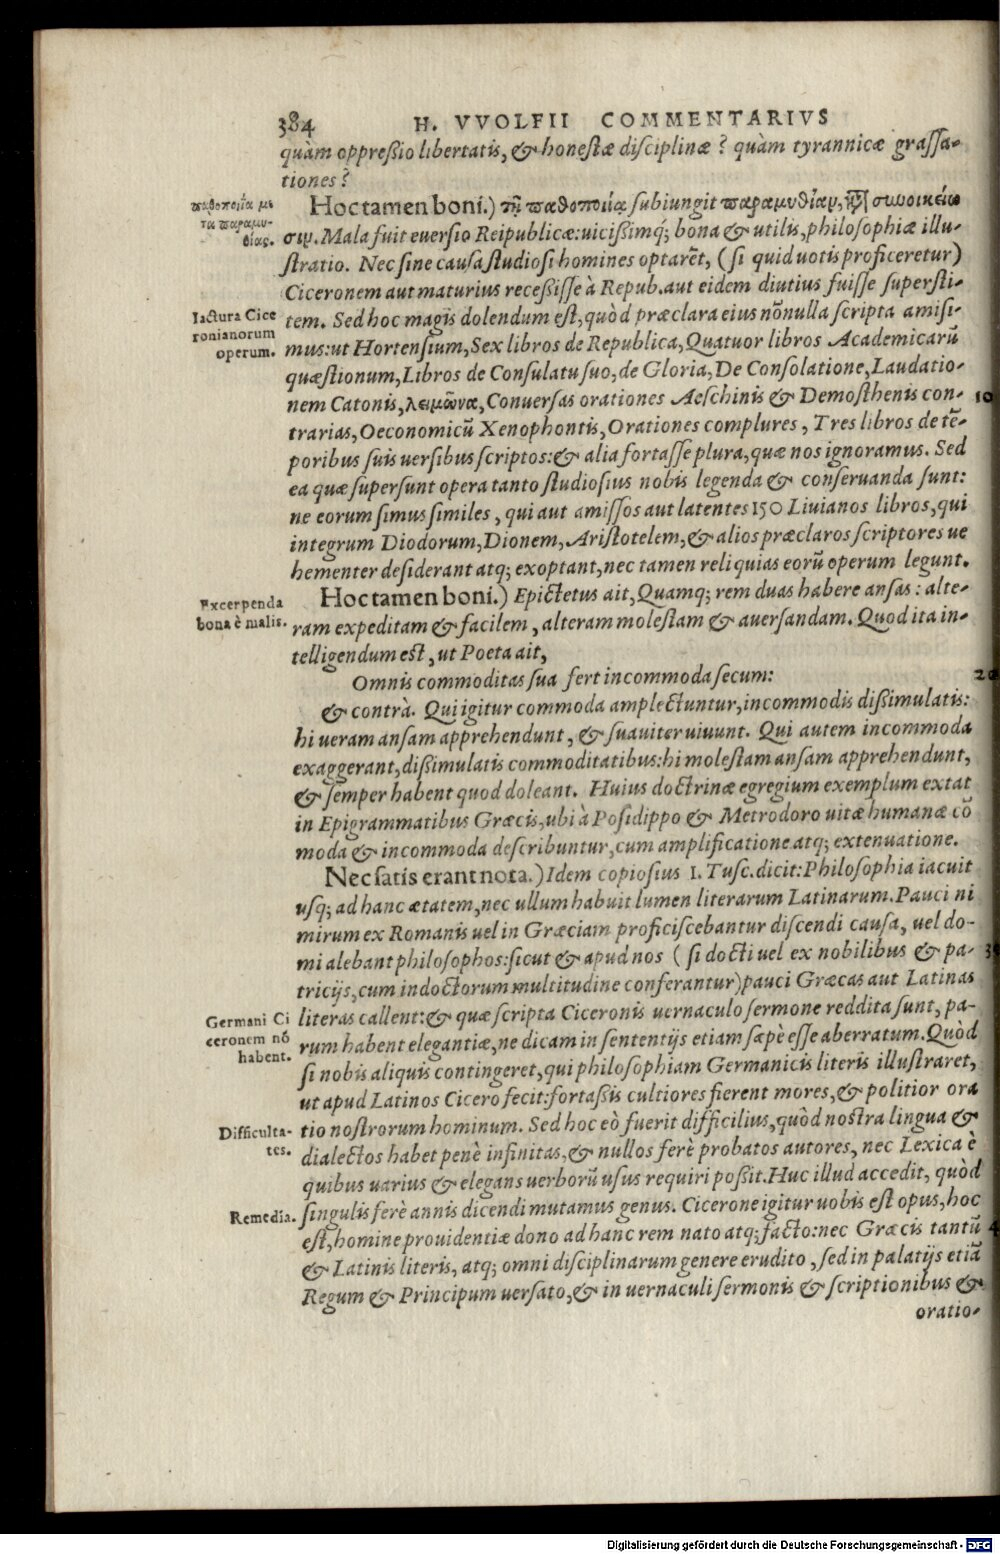 384 H. VVOLFII COMMENTARIVS
quàm oppreßio libertatis, & honestæ disciplinæ? quàm tyrannicæ grassa-
tiones?
παθοποιΐα με
τὰ παραμυ-
θίας.
Hoc tamen boni.) τῇ παθοποιΐᾳ subiungit παραμυθίαν, κατὰ συνοικείω
σιν. Mala fuit euersio Reipublicæ: uicißimq́; bona & utilis, philosophiæ illu-
stratio. Nec sine causa studiosi homines optarēt, (si quid uotis proficeretur)
Ciceronem aut maturius receßisse à Repub. aut eidem diutius fuisse supersti-
Iactura Cice
ronianorum
operum.
tem. Sed hoc magis dolendum est, quòd præclara eius nōnulla scripta amisi-
mus: ut Hortensium, Sex libros de Republica, Quatuor libros Academicarū
quæstionum, Libros de Consulatu suo, de Gloria, De Consolatione, Laudatio-
nem Catonis, λειμῶνα, Conuersas orationes Aeschinis & Demosthenis con- 10
trarias, Oeconomicū Xenophontis, Orationes complures, Tres libros de tē-
poribus suis uersibus scriptos: & alia fortasse plura, quæ nos ignoramus. Sed
ea quæ supersunt opera tanto studiosius nobis legenda & conseruanda sunt:
ne eorum simus similes, qui aut amissos aut latentes 150 Liuianos libros, qui
integrum Diodorum, Dionem, Aristotelem, & alios præclaros scriptores ue
hementer desiderant atq; exoptant, nec tamen reliquias eorū operum legunt.
Excerpenda
bona è malis.
Hoc tamen boni.) Epictetus ait, Quamq; rem duas habere ansas: alte-
ram expeditam & facilem, alteram molestam & auersandam. Quod ita in-
telligendum est, ut Poeta ait,
Omnis commoditas sua fert incommoda secum: 20
& contrà. Qui igitur commoda amplectuntur, incommodis dißimulatis:
hi ueram ansam apprehendunt, & suauiter uiuunt. Qui autem incommoda
exaggerant, dißimulatis commoditatibus: hi molestam ansam apprehendunt,
& semper habent quod doleant. Huius doctrinæ egregium exemplum extat
in Epigrammatibus Græcis, ubi à Posidippo & Metrodoro uitæ humanæ cō
moda & incommoda describuntur, cum amplificatione atq; extenuatione.
Nec satis erant nota.) Idem copiosius 1. Tusc. dicit: Philosophia iacuit
usq; ad hanc ætatem, nec ullum habuit lumen literarum Latinarum. Pauci ni
mirum ex Romanis uel in Græciam proficiscebantur discendi causa, uel do-
mi alebant philosophos: sicut & apud nos (si docti uel ex nobilibus & pa-
tricijs, cum indoctorum multitudine conferantur) pauci Græcas aut Latinas
Germani Ci
ceronem nō
habent.
literas callent: & quæ scripta Ciceronis uernaculo sermone reddita sunt, pa-
rum habent elegantiæ, ne dicam in sententijs etiam sæpè esse aberratum. Quòd
si nobis aliquis contingeret, qui philosophiam Germanicis literis illustraret,
ut apud Latinos Cicero fecit: fortaßis cultiores fierent mores, & politior ora
Difficulta-
tes.
tio nostrorum hominum. Sed hoc eò fuerit difficilius, quòd nostra lingua &
dialectos habet penè infinitas, & nullos ferè probatos autores, nec Lexica è
quibus uarius & elegans uerborū usus requiri poßit. Huc illud accedit, quòd
Remedia.
singulis ferè annis dicendi mutamus genus. Cicerone igitur uobis est opus, hoc
est, homine prouidentiæ dono ad hanc rem nato atq; facto: nec Græcis tantū
& Latinis literis, atq; omni disciplinarum genere erudito, sed in palatijs etiā
Regum & Principum uersato, & in uernaculi sermonis & scriptionibus &
oratio-
Digitalisierung gefördert durch die Deutsche Forschungsgemeinschaft - DFG